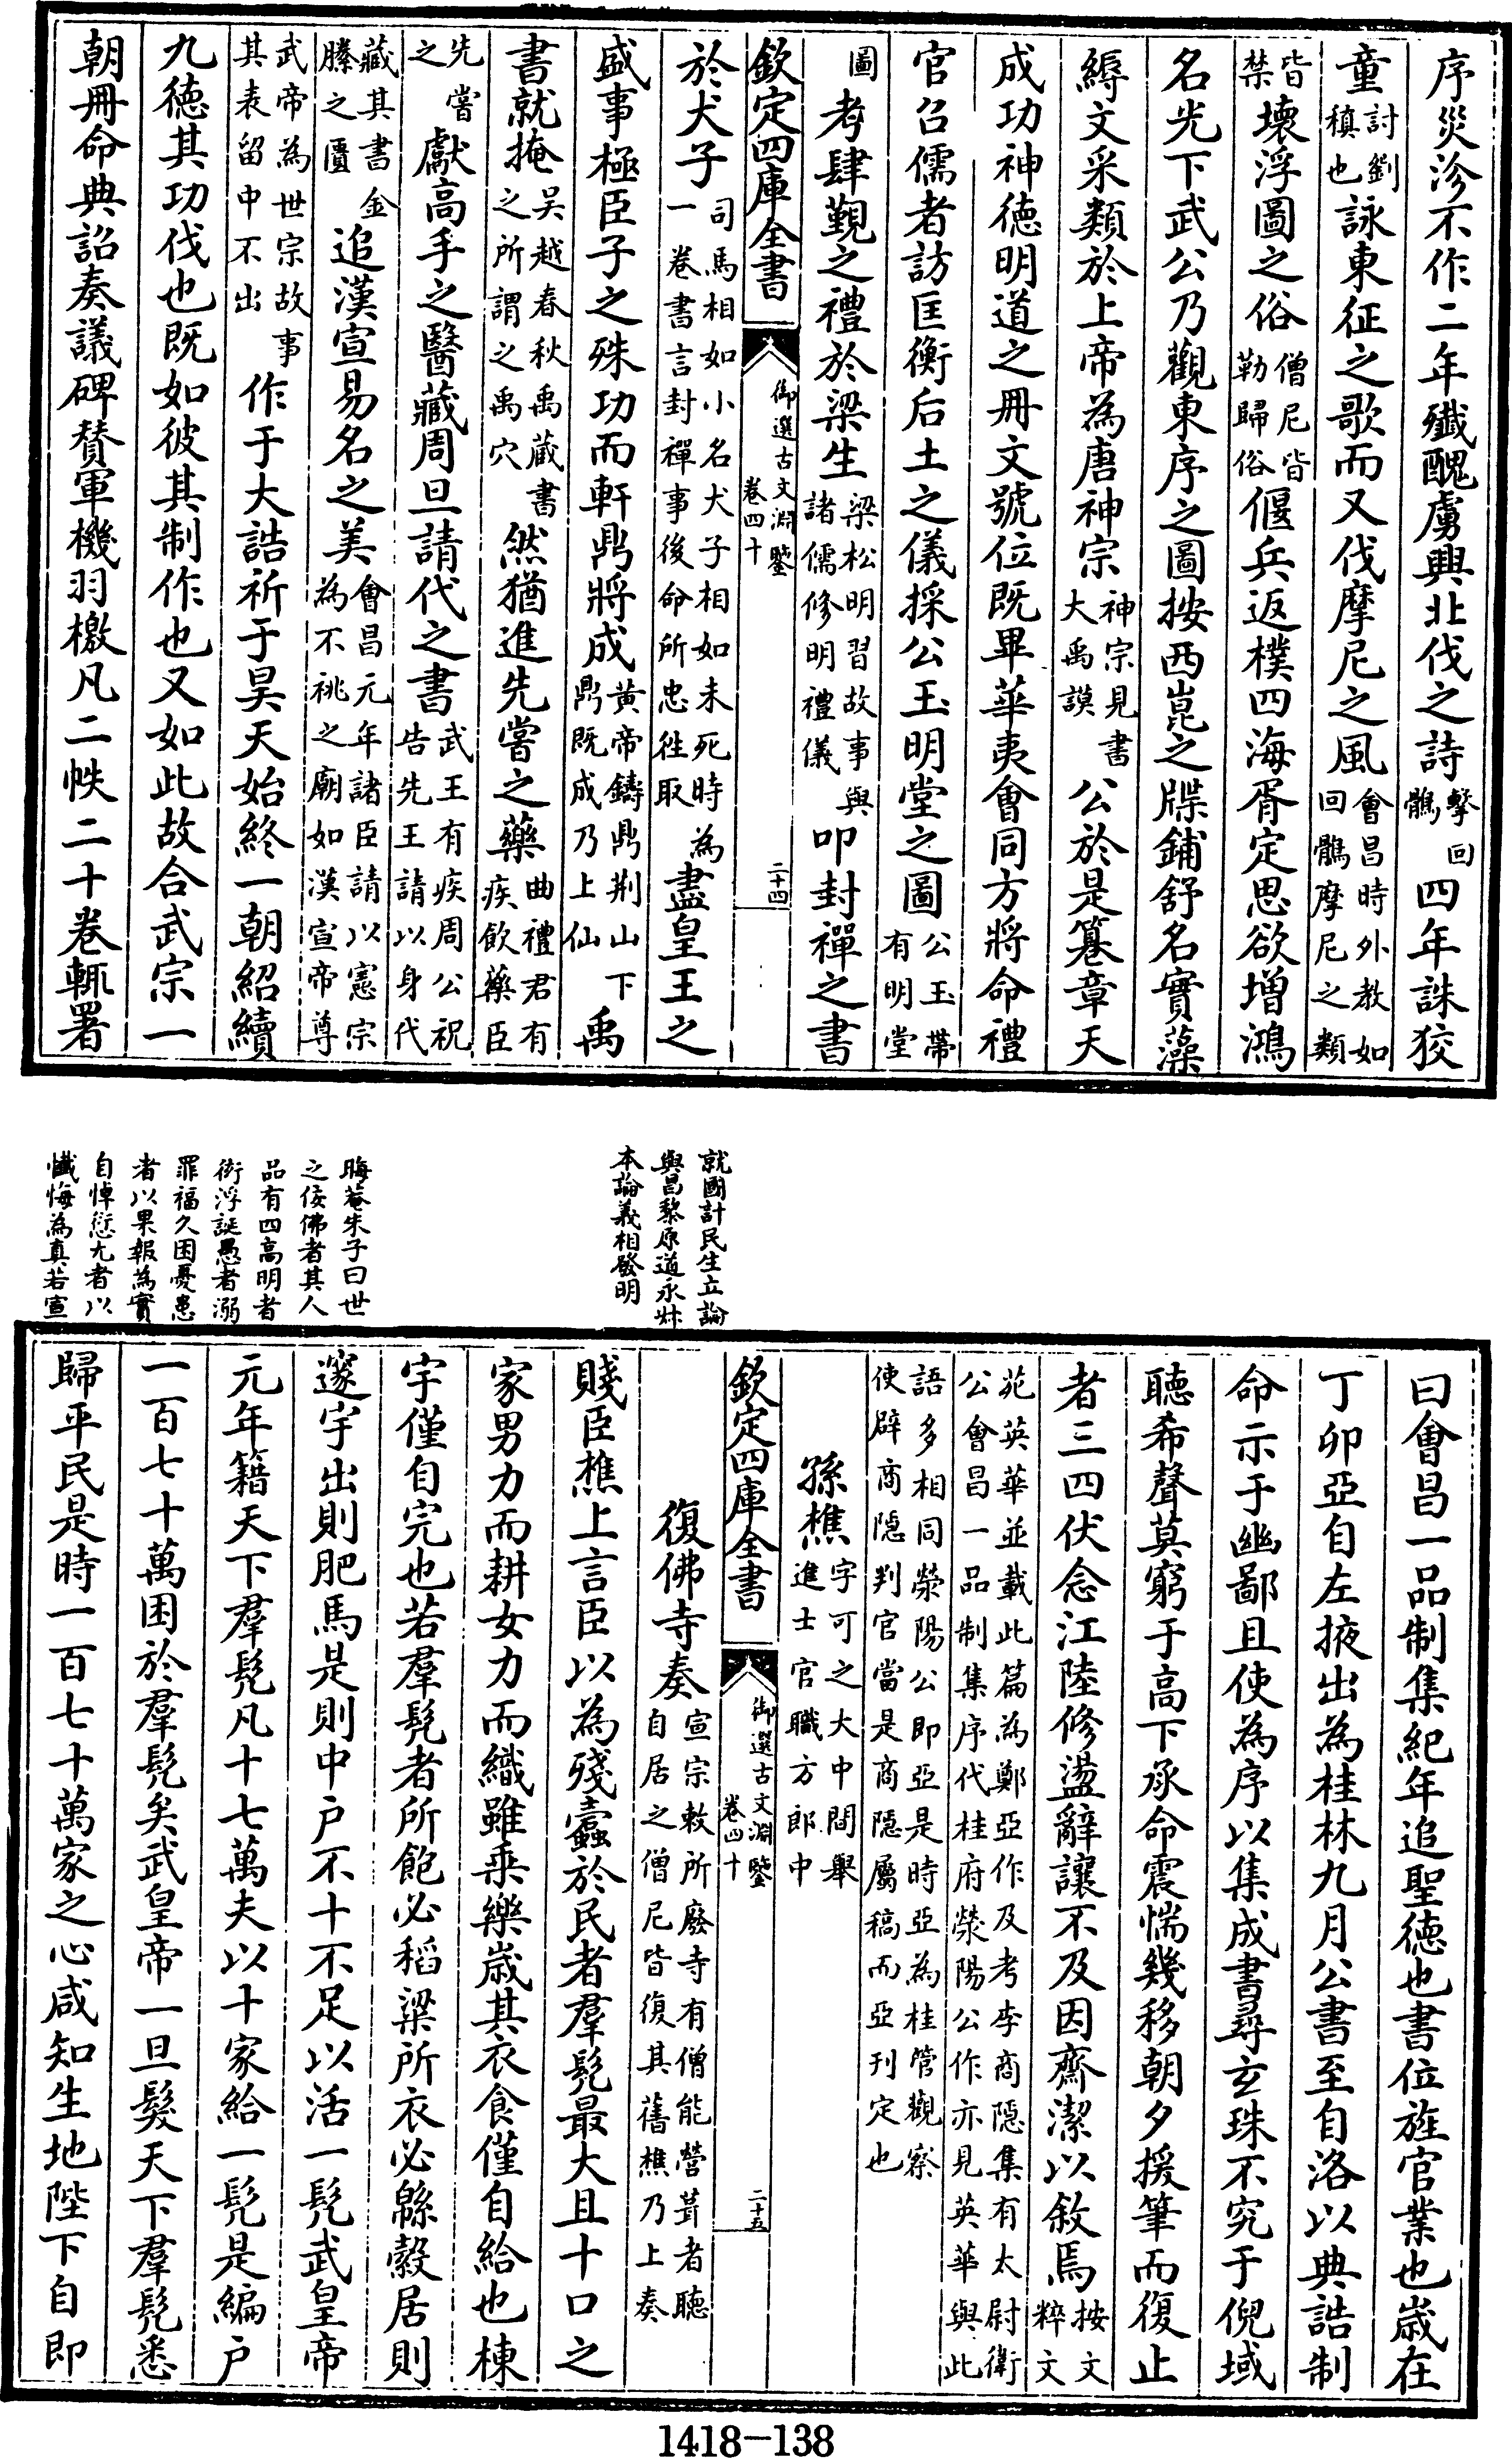 序災沴不作二年殲醜虜興北伐之詩擊回鶻四年誅狡
童討劉稹也詠東征之歌而又伐摩尼之風會昌時外教如回鶻摩尼之類
皆禁壞浮圖之俗僧尼皆勒歸俗偃兵返樸四海胥定思欲增鴻
名光下武公乃觀東序之圖按西崑之牒鋪舒名實藻
縟文采類於上帝為唐神宗神宗見書大禹謨公於是篹章天
成功神德明道之冊文號位既畢華夷會同方將命禮
官召儒者訪匡衡后土之儀採公玉明堂之圖公玉帶有明堂
圖考肆覲之禮於梁生梁松明習故事與諸儒修明禮儀叩封禪之書
欽定四庫全書
御選古文淵鑒
卷四十
二十四
於犬子司馬相如小名犬子相如未死時為一卷書言封禪事後命所忠徃取盡皇王之
盛事極臣子之殊功而軒鼎將成黄帝鑄鼎荆山下鼎既成乃上仙禹
書就掩吴越春秋禹藏書之所謂之禹穴然猶進先嘗之藥曲禮君有疾飲藥臣
先嘗之獻高手之醫藏周旦請代之書武王有疾周公祝告先王請以身代
藏其書金縢之匱追漢宣易名之美會昌元年諸臣請以憲宗為不祧之廟如漢宣帝尊
武帝為世宗故事其表留中不出作于大誥祈于昊天始終一朝紹續
九德其功伐也既如彼其制作也又如此故合武宗一
朝冊命典詔奏議碑贊軍機羽檄凡二帙二十卷輒署
就國計民生立論
與昌黎原道永叔
本論義相發明
晦菴朱子曰世
之佞佛者其人
品有四高明者
術浮誕愚者溺
罪福久困憂患
者以果報為實
自悼愆尤者以
懺悔為真若宣
曰會昌一品制集紀年追聖德也書位旌官業也歲在
丁卯亞自左掖出為桂林九月公書至自洛以典誥制
命示于幽鄙且使為序以集成書尋玄珠不究于倪域
聴希聲莫窮于高下承命震惴幾移朝夕援筆而復止
者三四伏念江陸修盪辭讓不及因齋潔以敘焉按文粹文
苑英華並載此篇為鄭亞作及考李商隠集有太尉衛公會昌一品制集序代桂府滎陽公作亦見英華與此
語多相同滎陽公即亞是時亞為桂管觀察使辟商隠判官當是商隠屬稿而亞刋定也
孫樵字可之大中間舉進士官職方郎中
欽定四庫全書
御選古文淵鑒
卷四十
二十五
復佛寺奏宣宗敕所廢寺有僧能營葺者聽自居之僧尼皆復其舊樵乃上奏
賤臣樵上言臣以為殘蠧於民者羣髠最大且十口之
家男力而耕女力而織雖乘樂歲其衣食僅自給也棟
宇僅自完也若羣髠者所飽必稻粱所衣必緜縠居則
邃宇出則肥馬是則中户不十不足以活一髠武皇帝
元年籍天下羣髠凡十七萬夫以十家給一髠是編户
一百七十萬困於羣髠矣武皇帝一旦髮天下羣髠悉
歸平民是時一百七十萬家之心咸知生地陛下自即
1418-138